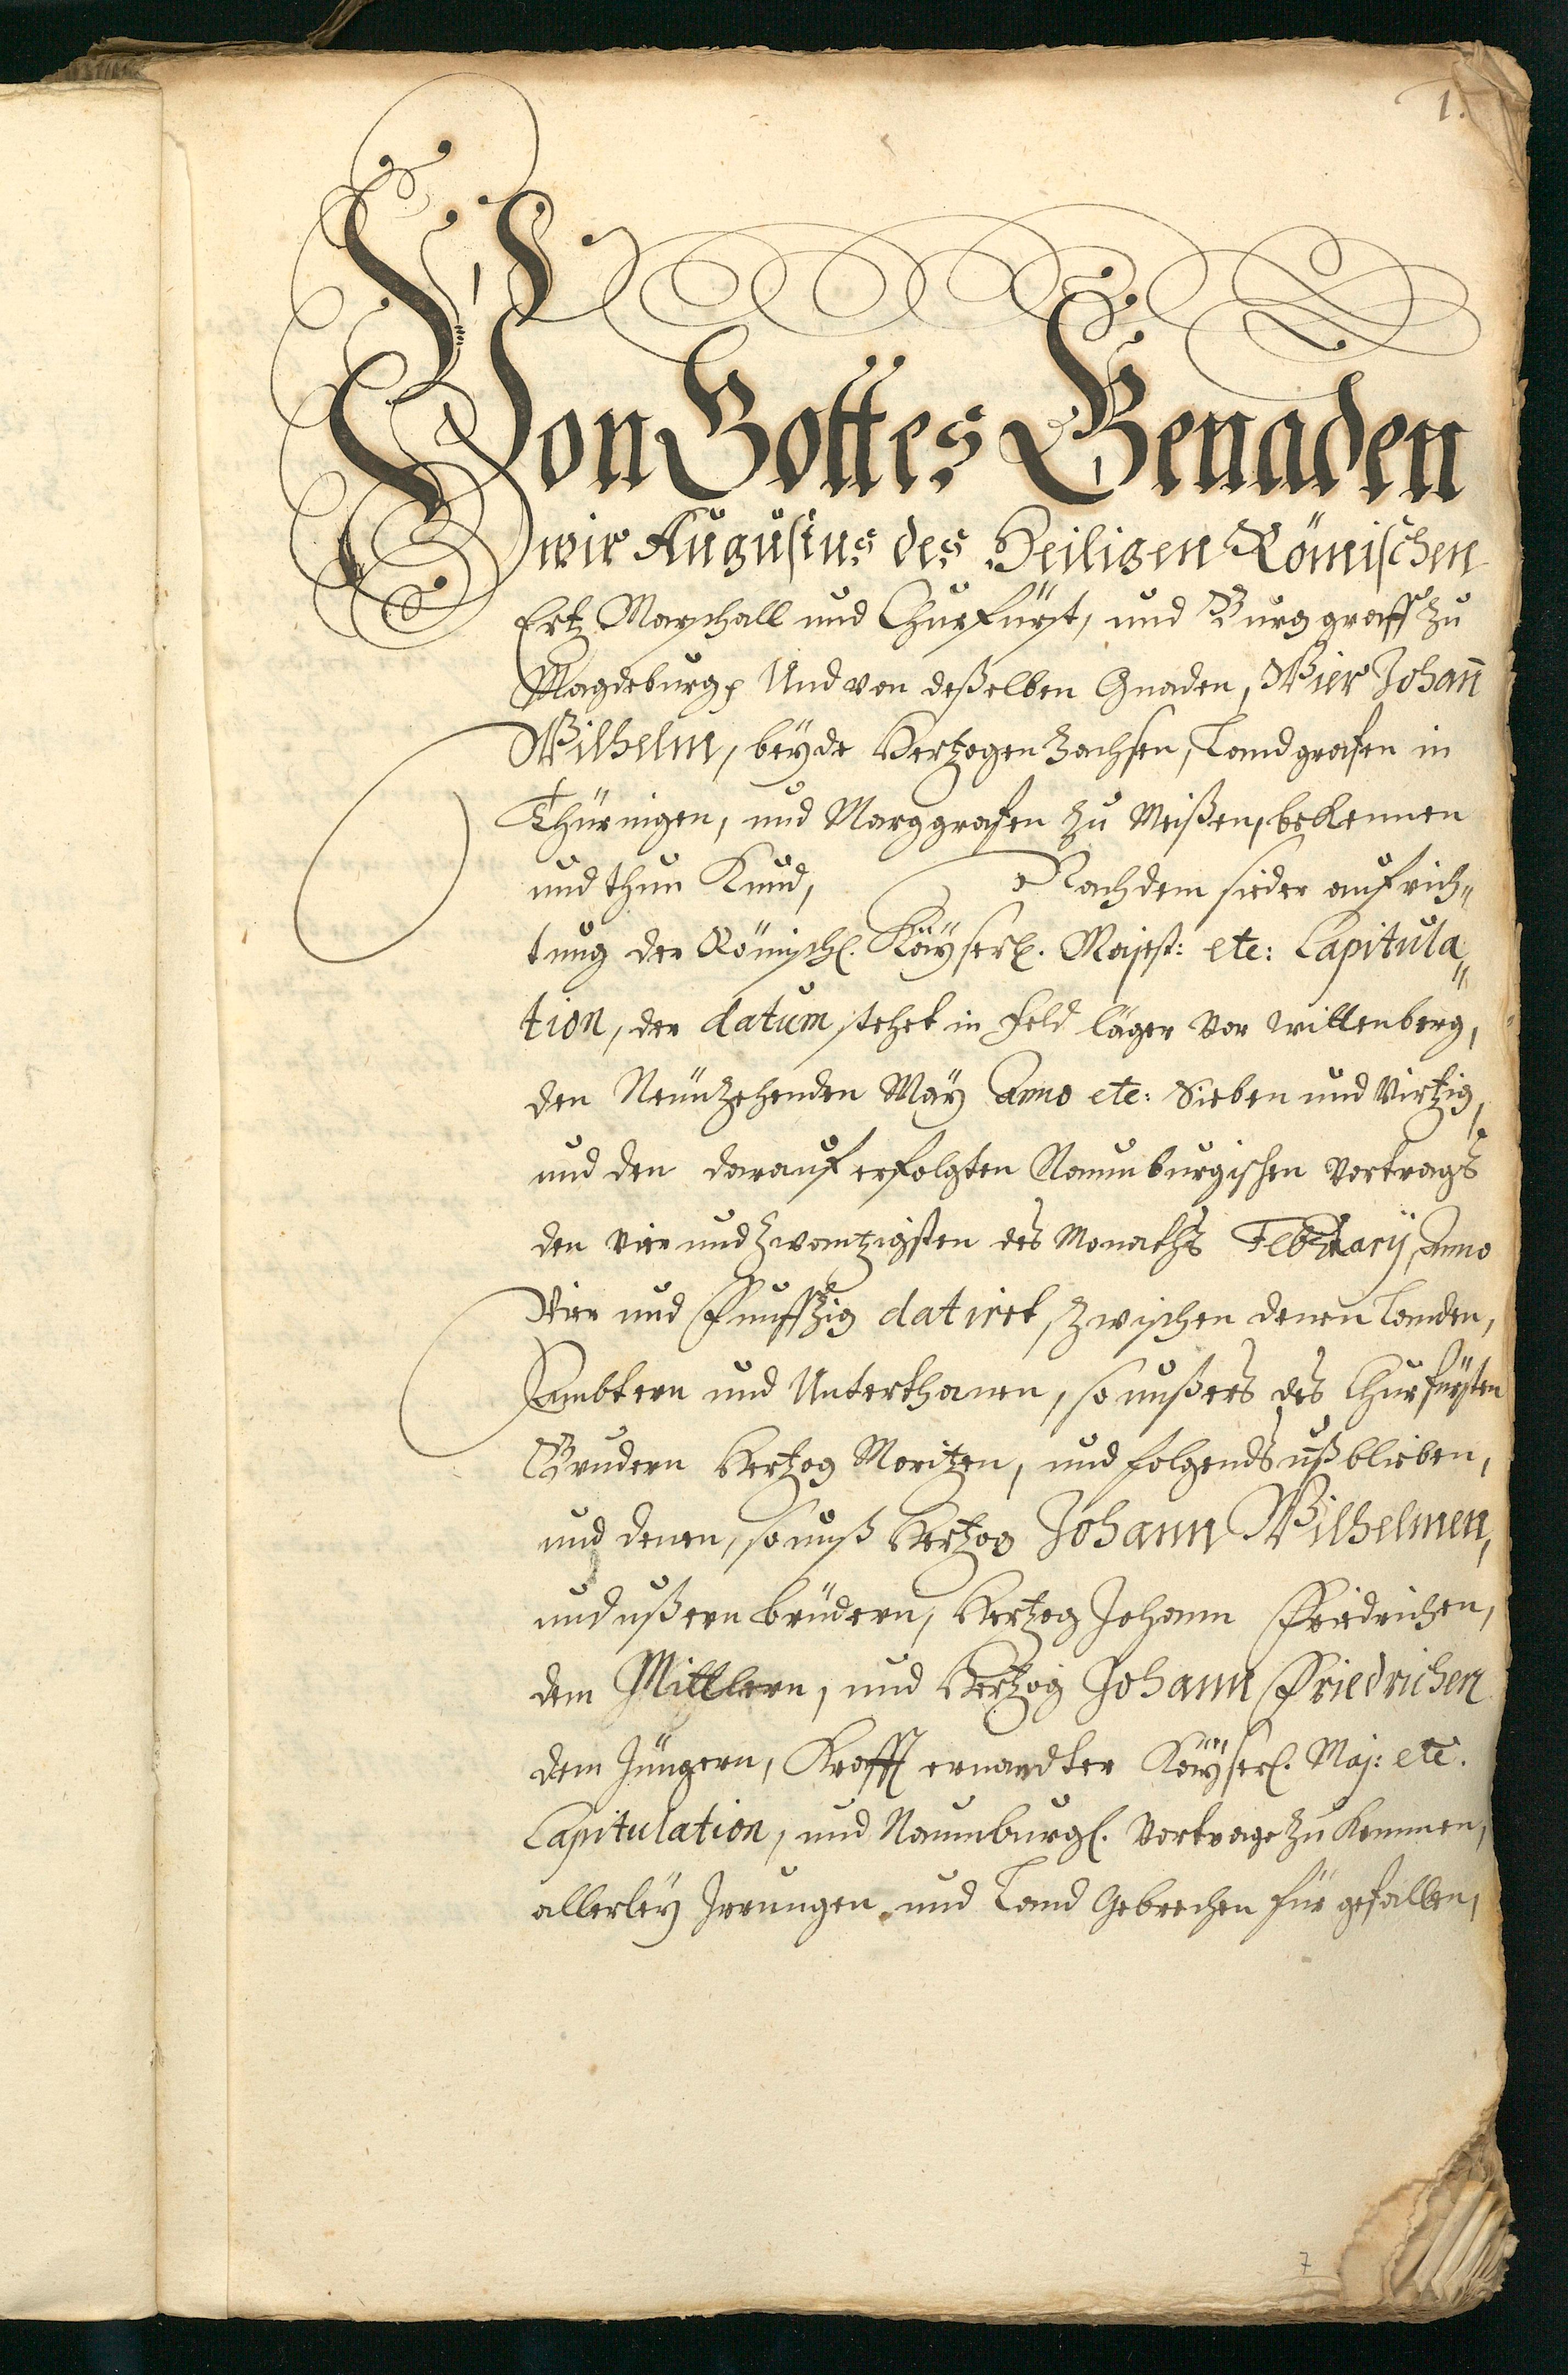 1.
Von Gottes Genaden
wir Augustus des Heiligen Römischen
Ertz Marschall und Churfürst, und Burggraff zu
Magdeburg, Und von deßelben Gnaden, Wier Johañ
Wilhelm, beyde Hertzogen Zachsen, Landgrafen in
Thüringen, und Marggrafen zu Meißen, bekennen
und thun Kund, Nachdem sieder aufrich„
tung der Römisch. Käyserl. Majest: etc: Capitula„
tion, der datum stehet in Feld läger vor Wittenberg,
den Neünzehenden Maÿ Anno etc: Sieben und Virtzig,
und den darauf erfolgten Naumburgischen Vortrags
den vier und Zwantzigsten des Monaths Februarij, Anno
Vier und Funffzig datiret, Zwischen denen Landen,
Ambtern und Unterthanen, so unßers des Churfürsten
Brudern Hertzog Moritzen, und folgends uß blieben,
und denen, so unß Hertzog Johann Wilhelmen,
und ußern brüdern, Hertzog Johann Friedrichen,
dem Mittlern, und Hertzog Johann Friedrichen
dem Jüngern, Krafft ernandter Käyserl. Maj: etc.
Capitulation, und Naumburgl. Vortrage zu kommen,
allerleÿ Irrungen und Land Gebrechen für gefallen,
7